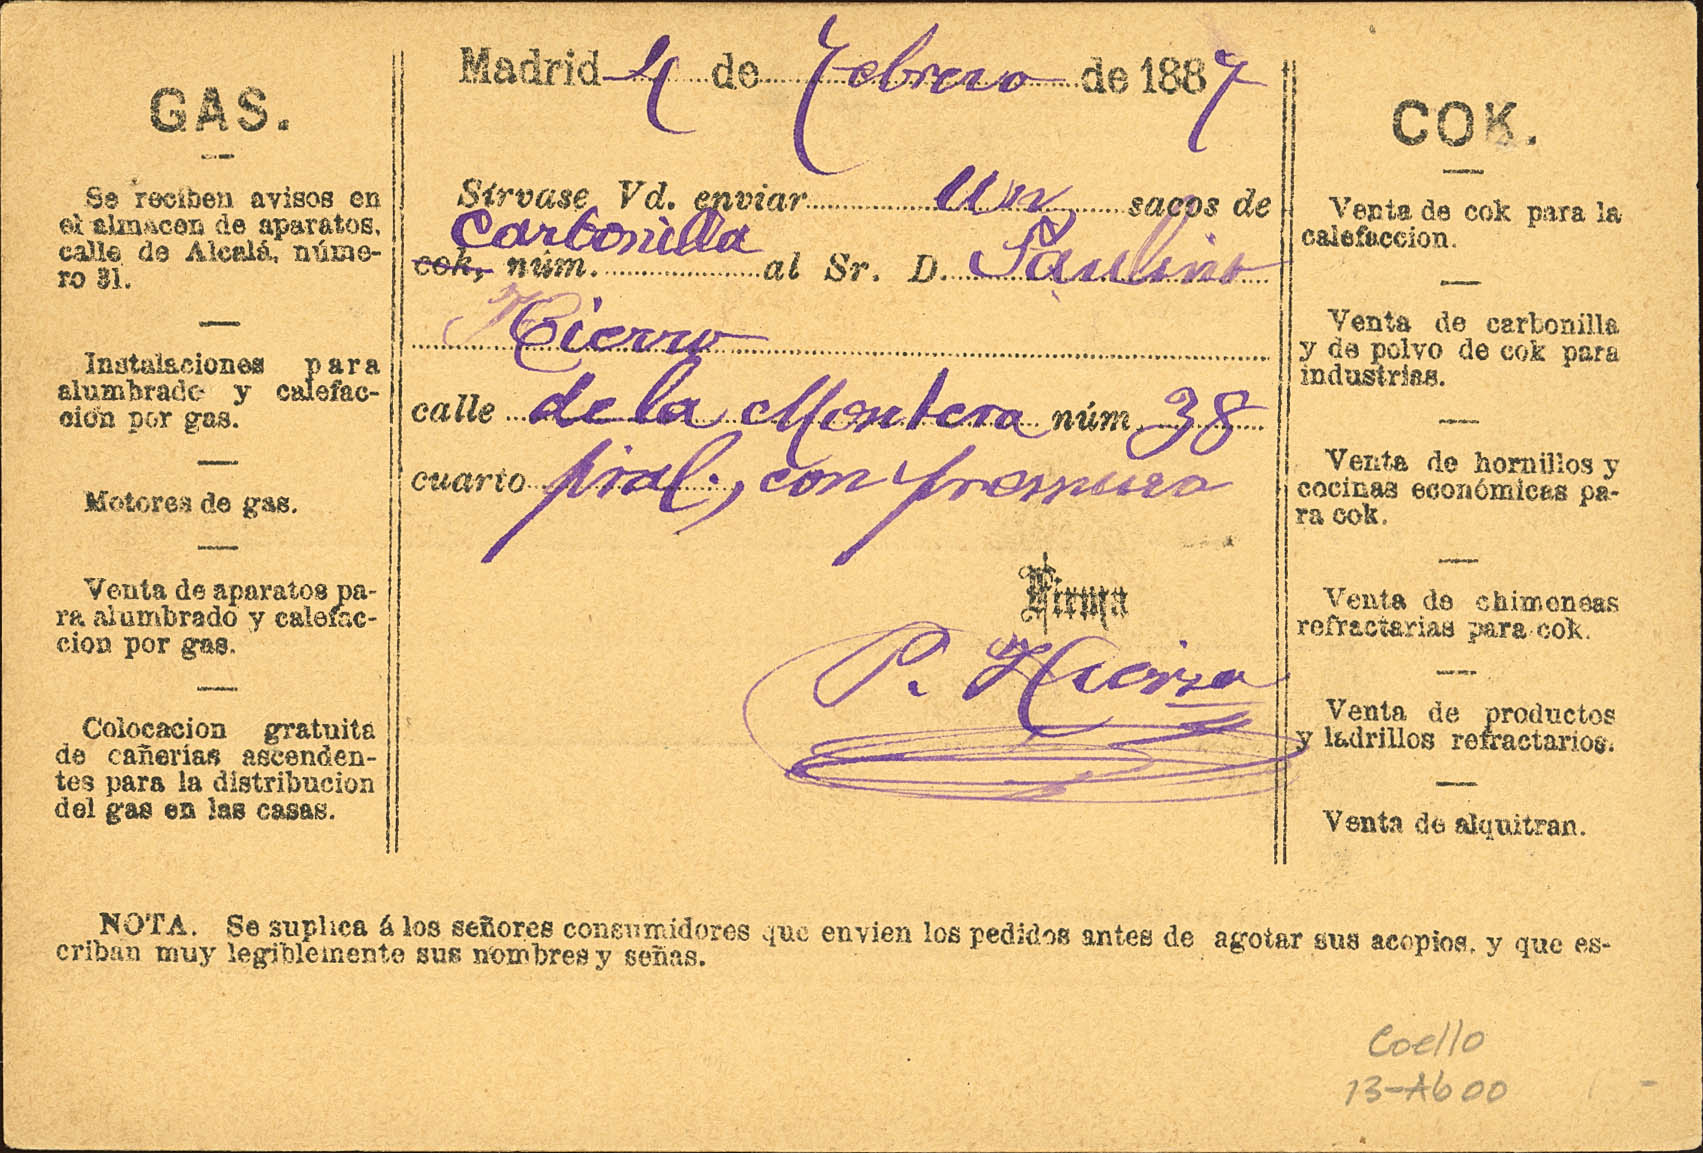 GAS.
Se reciben avisos en
el almacen de aparatos,
calle de Alcalá, núme-
ro 31.
Instalaciones para
alumbrado y calefac-
ción por gas.
Motores de gas.
Venta de aparatos pa-
ra alumbrado y calefac-
cion por gas.
Colocacion gratuita
de cañerias ascenden-
tes para la distribucion
del gas en las casas.
Madrid 4 de Febrero de 1887
Sírvase Vd. enviar un sacos de
carbonilla
cok, núm. al Sr. D. Paulino
Hierro
calle de la Montera núm. 38
cuarto pral., con premura
Firma
P. Hierro
COK.
Venta de cok para la
calefaccion.
Venta de carbonilla
y de polvo de cok para
industrias.
Venta de hornillos y
cocinas económicas pa-
ra cok.
Venta de chimeneas
refractarias para cok.
Venta de productos
y ladrillos refractarios.
Venta de alquitran.
NOTA. Se suplica á los señores consumidores que envien los pedidos antes de agotar sus acopios, y que es-
criban muy legiblemente sus nombres y señas.
Coello
13-Ab 00